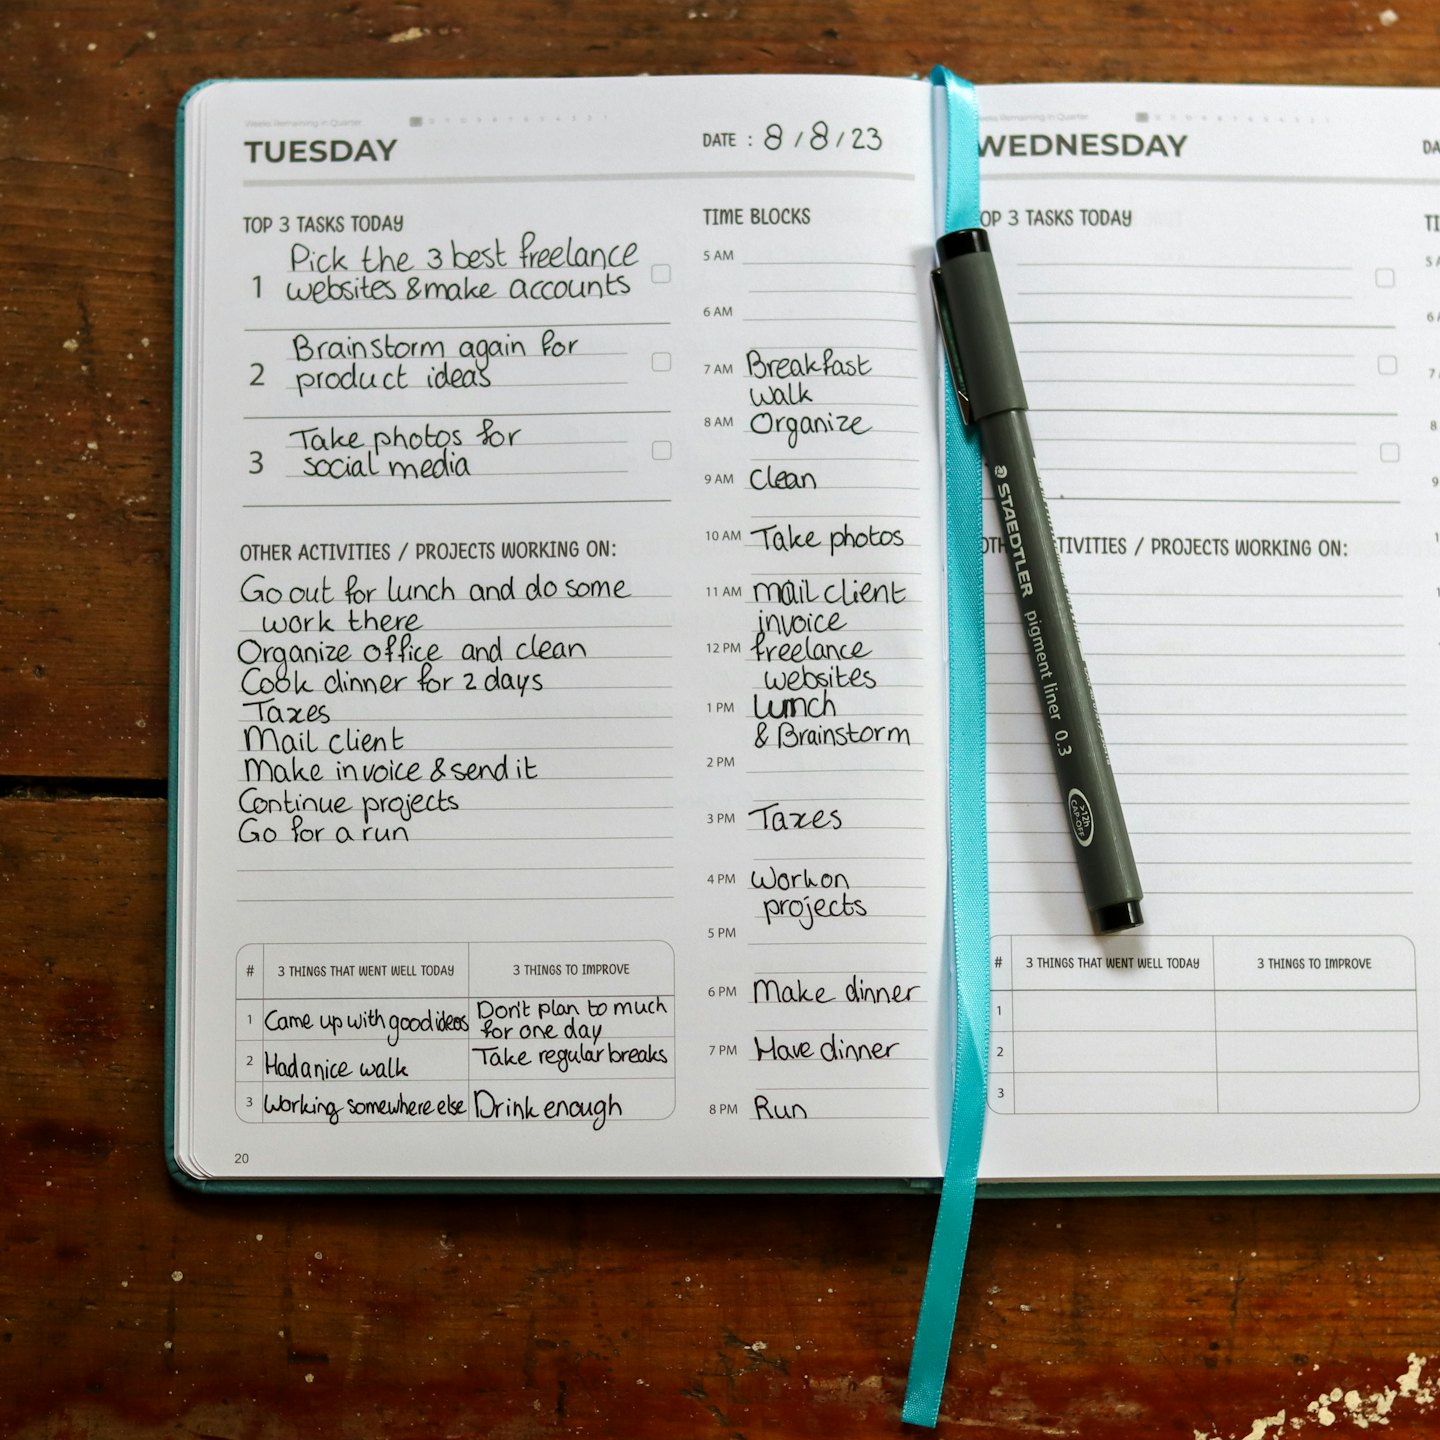 Weeks Remaining in Quarter
TUESDAY
DATE : 8 / 8 / 23
TOP 3 TASKS TODAY
1 Pick the 3 best freelance
websites & make accounts
2 Brainstorm again for
product ideas
3 Take photos for
social media
OTHER ACTIVITIES / PROJECTS WORKING ON:
Go out for lunch and do some
work there
Organize office and clean
Cook dinner for 2 days
Taxes
Mail client
Make invoice & send it
Continue projects
Go for a run
# 3 THINGS THAT WENT WELL TODAY 3 THINGS TO IMPROVE
1 Came up with good ideas Don't plan to much
for one day
2 Had a nice walk Take regular breaks
3 Working somewhere else Drink enough
20
TIME BLOCKS
5 AM
6 AM
7 AM Breakfast
walk
8 AM Organize
9 AM Clean
10 AM Take photos
11 AM mail client
invoice
12 PM freelance
websites
1 PM Lunch
& Brainstorm
2 PM
3 PM Taxes
4 PM Work on
projects
5 PM
6 PM Make dinner
7 PM Have dinner
8 PM Run
STAEDTLER pigment liner 0.3
>12h
CAP-OFF
Remaining in Quarter
WEDNESDAY
DA
OP 3 TASKS TODAY
TI
5 A
6
7
8
9
OTH TIVITIES / PROJECTS WORKING ON:
# 3 THINGS THAT WENT WELL TODAY 3 THINGS TO IMPROVE
1
2
3